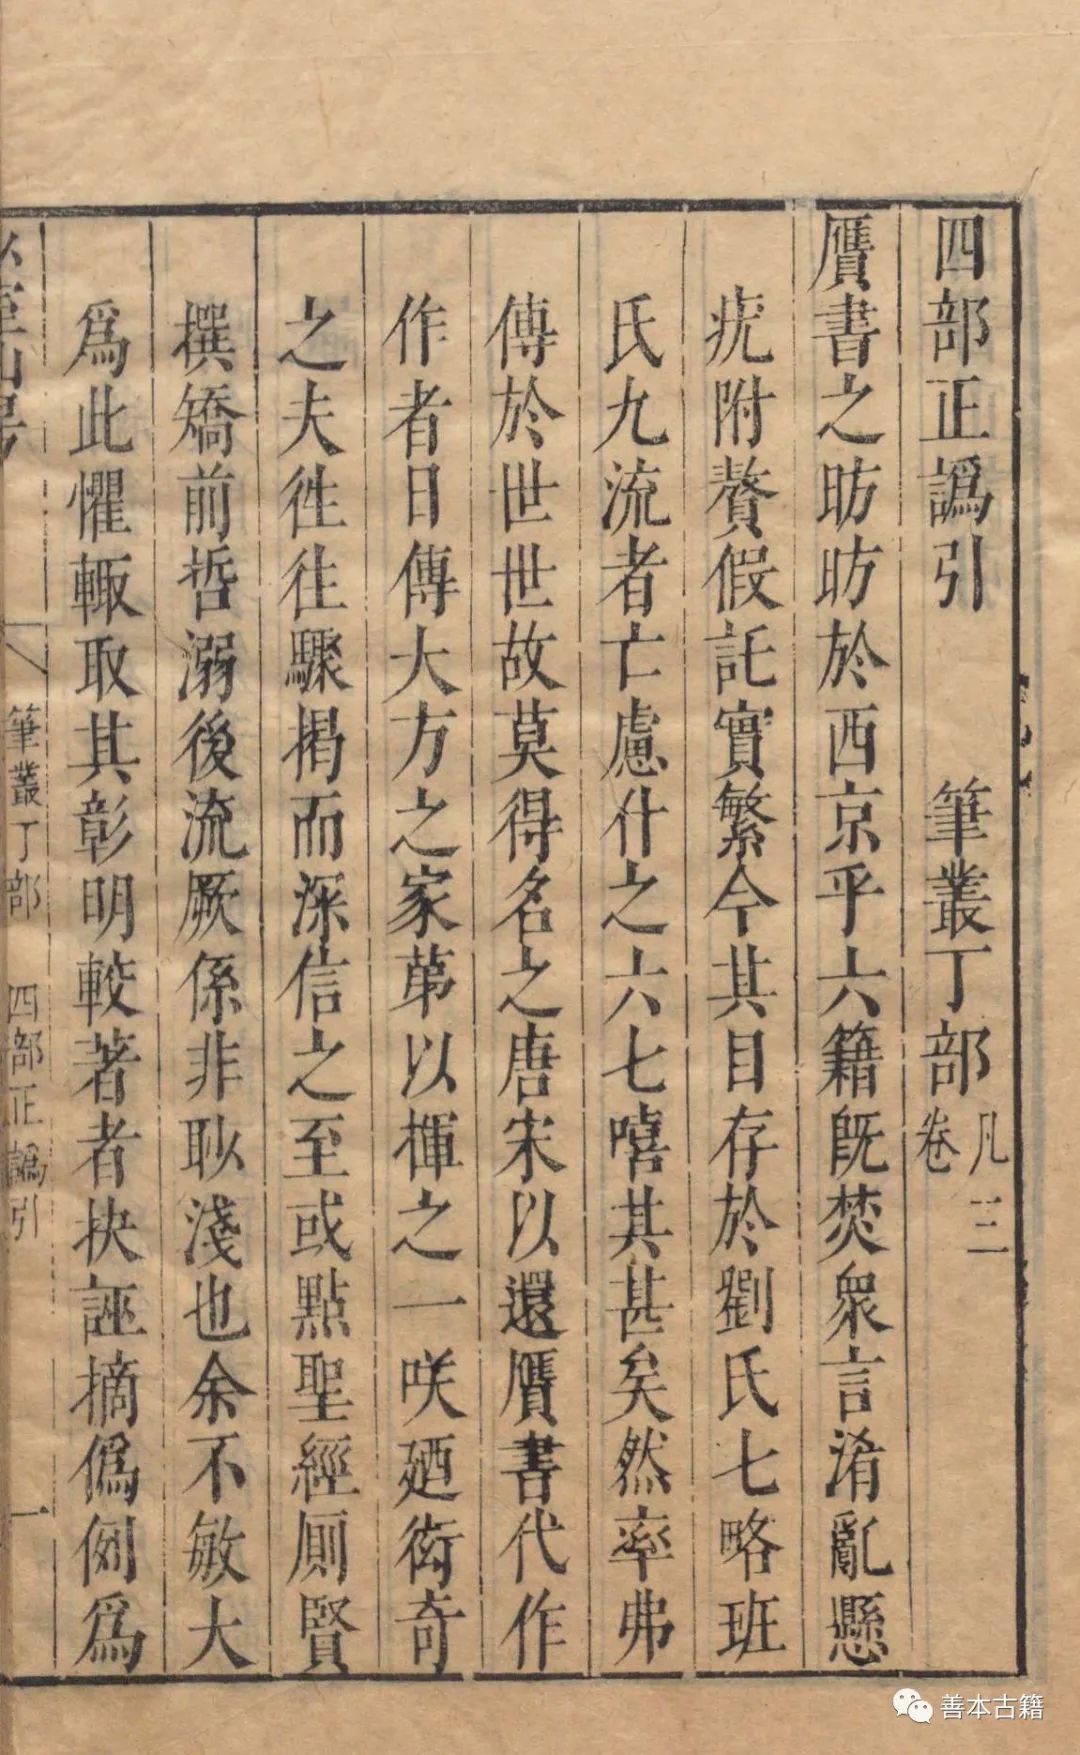 四部正譌引 筆叢丁部 凡三卷
贋書之昉昉於西京乎六籍旣焚衆言淆亂懸
疣附贅假託實繁今其目存於劉氏七略班
氏九流者亡慮什之六七嘻其甚矣然率弗
傳於世世故莫得名之唐宋以還贋書代作
作者日傳大方之家第以揮之一咲廼衒奇
之夫徃往驟揭而深信之至或點聖經廁賢
撰矯前哲溺後流厥係非眇淺也余不敏大
爲此懼輙取其彰明較著者抉誣摘僞列爲
筆叢丁部 四部正譌引 一
善本古籍